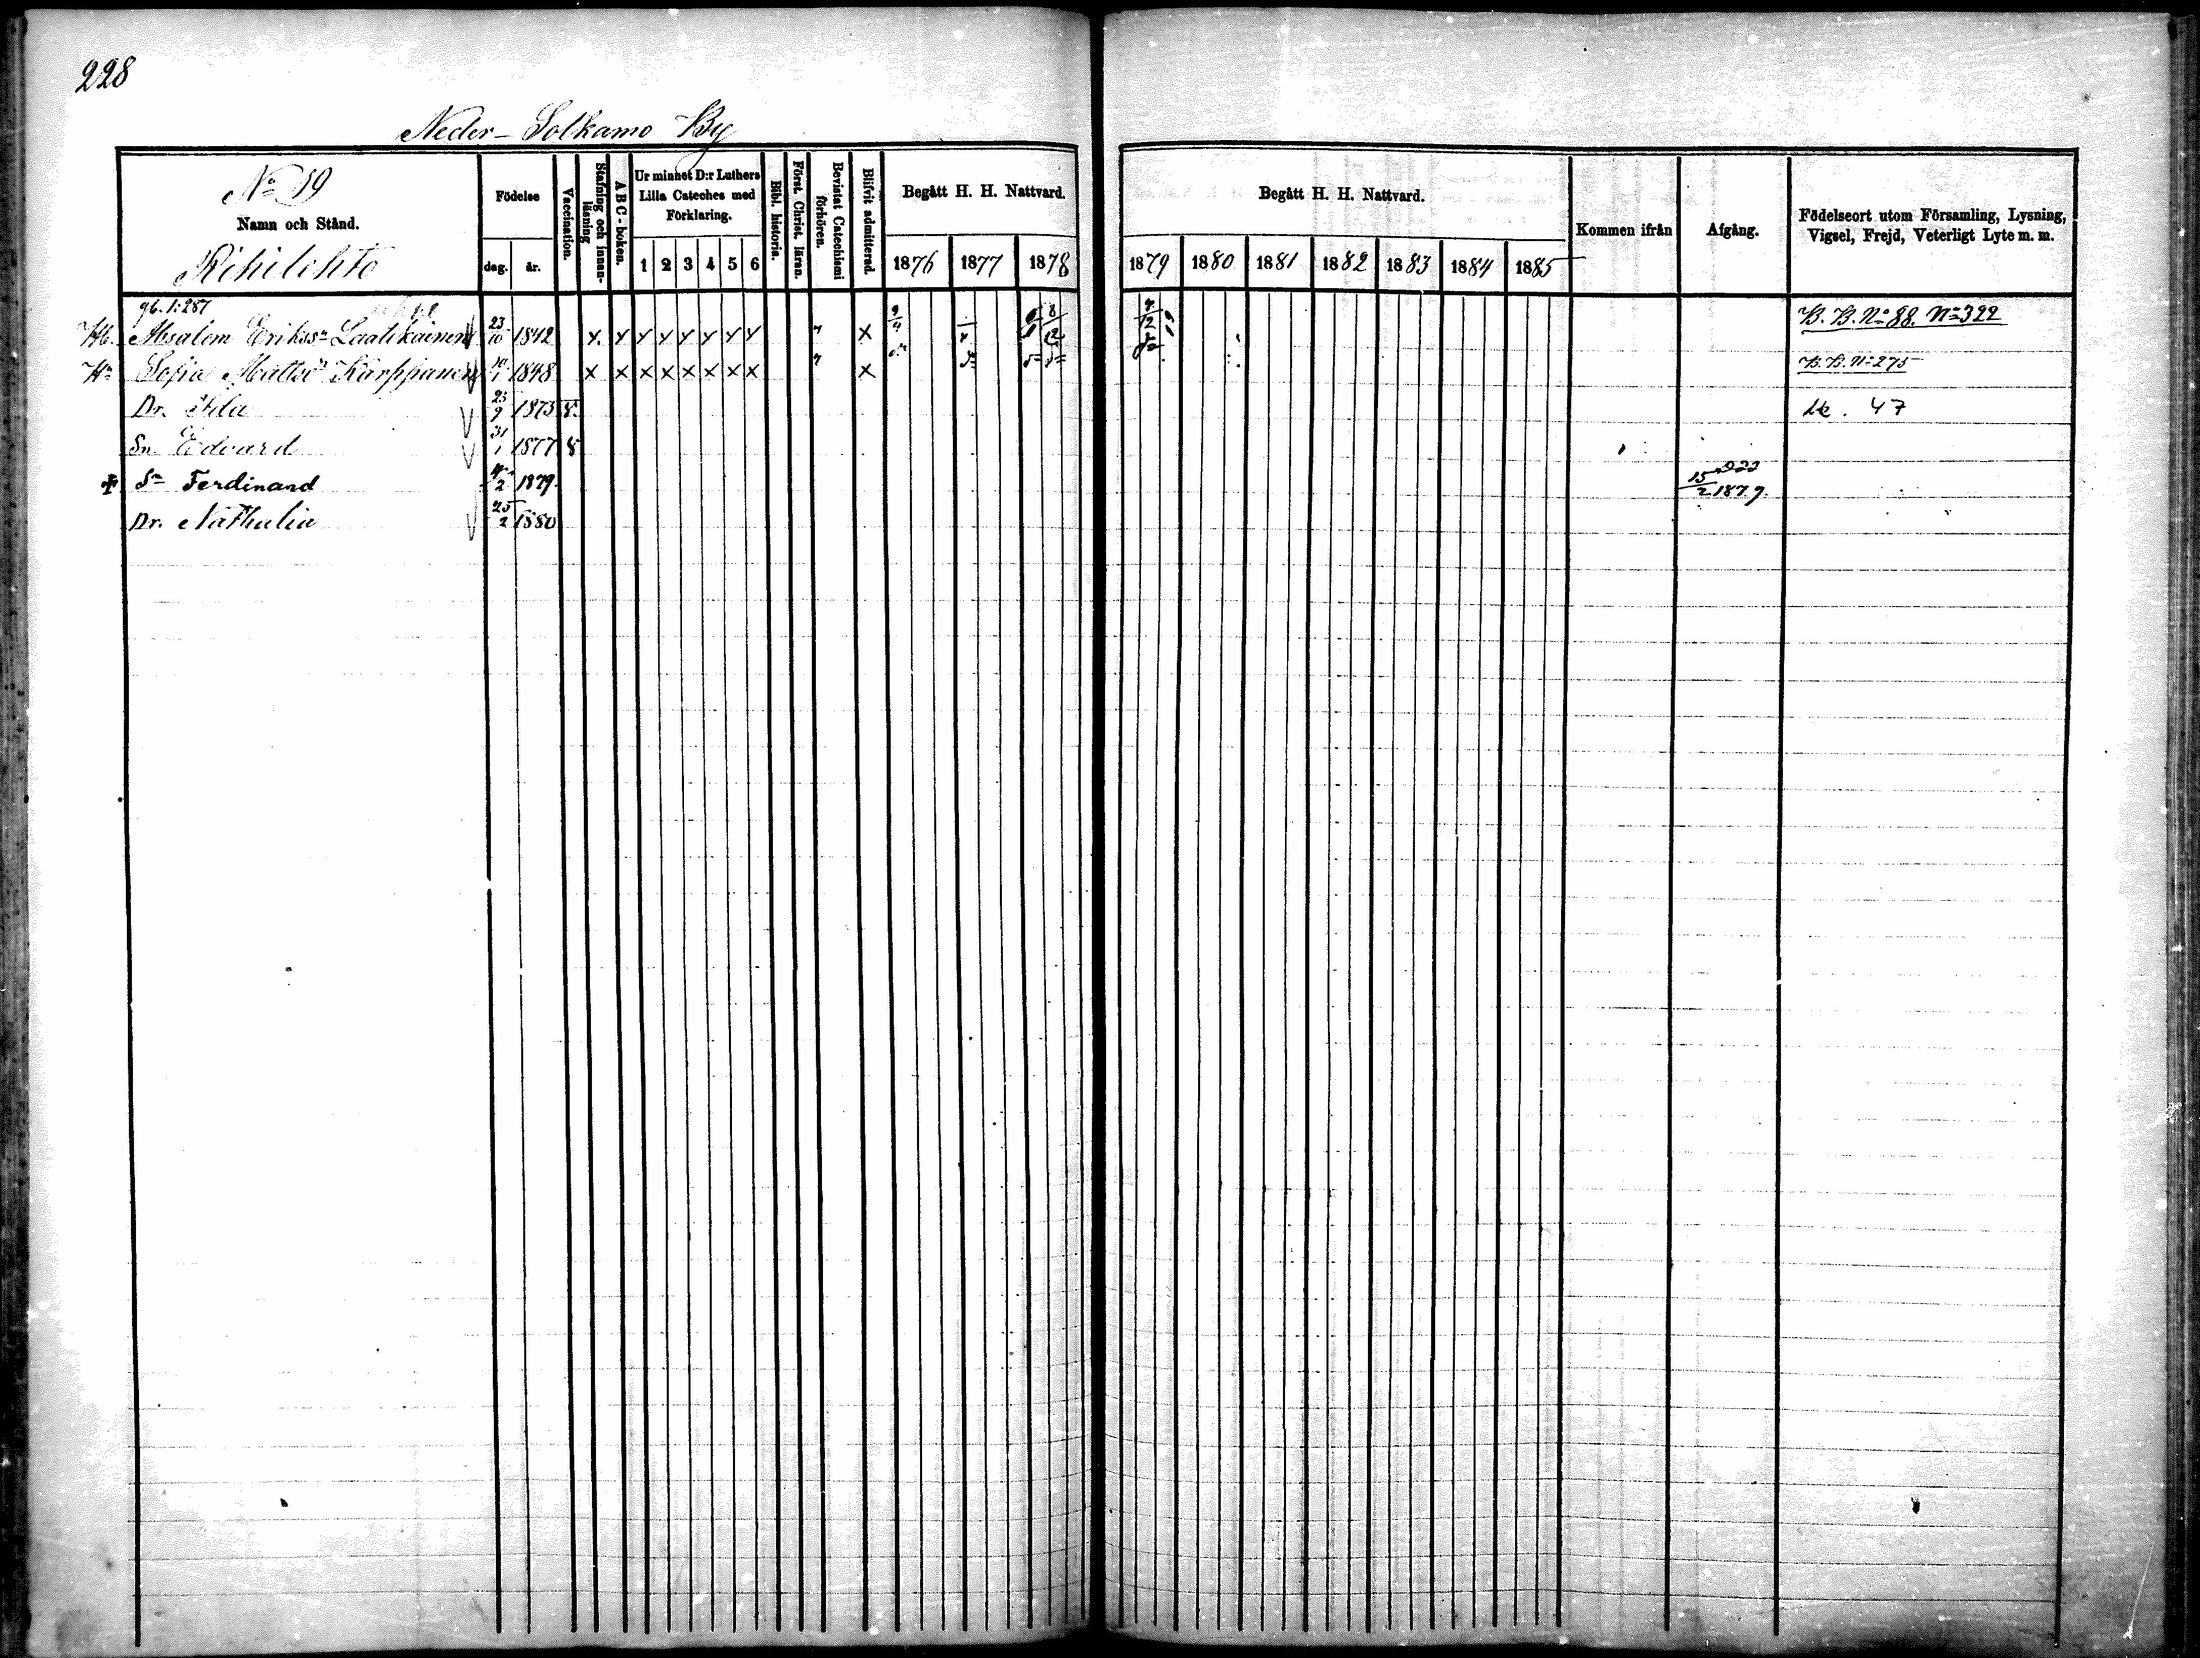 228
Neder-Solkamo By
No 19
Namn och Stånd.
Rihilehto
Födelse
dag. år.
Vaccination.
Stafning och innanläsning
ABC-boken.
Ur minnet D:r Luthers
Lilla Cateches med
Förklaring.
1 2 3 4 5 6
Bibl. historia.
Först. Christ. läran.
Bevistat Catechismi förhören.
Blifvit admitterad.
Begått H. H. Nattvard.
1876 1877 1878
Begått H. H. Nattvard.
1879 1880 1881 1882 1883 1884 1885
Kommen ifrån
Afgång.
Födelseort utom Församling, Lysning,
Vigsel, Frejd, Veterligt Lyte m. m.
96.1:287
Hb. Absalom Erikss:n Laatikainen 23/10 1842 x x x x x x x x " x 9/4 B. B. No 88. No 322
Hu Sofia Mattsd:r Karppanen 1848 x x x x x x x x " x B. B. No 275
Dr. Ida 25/9 1873 v. Lk. 47
Sn. Edvard 31/1 1877 v
+ Sn Ferdinand 2 1879 15/2 1879.
Dr. Nathalia 25/2 1880